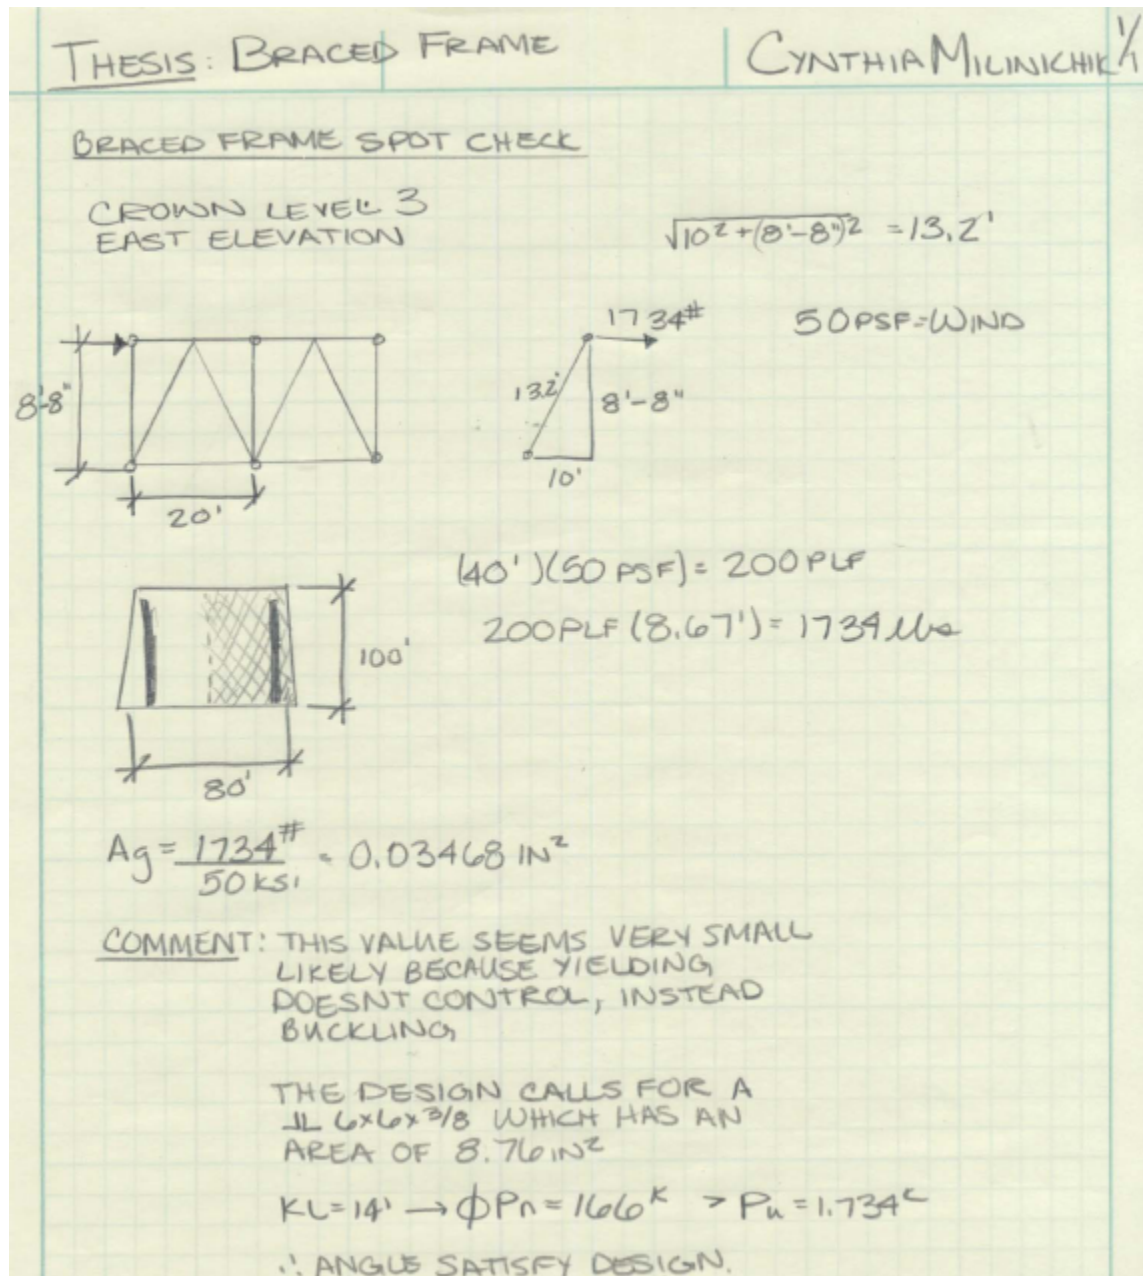 THESIS: BRACED FRAME
CYNTHIA MILINICHIK 1/1
BRACED FRAME SPOT CHECK
CROWN LEVEL 3
EAST ELEVATION
√10² + (8'-8")² = 13.2'
1734#
50 PSF = WIND
8'-8"
13.2'
8'-8"
10'
20'
(40')(50 PSF) = 200 PLF
200 PLF (8.67') = 1734 lbs
100'
80'
Ag = 1734# / 50 KSI = 0.03468 IN²
COMMENT: THIS VALUE SEEMS VERY SMALL
LIKELY BECAUSE YIELDING
DOESNT CONTROL, INSTEAD
BUCKLING
THE DESIGN CALLS FOR A
⅃L 6x6x3/8 WHICH HAS AN
AREA OF 8.76 IN²
KL = 14' → ϕPn = 166K > Pu = 1.734K
∴ ANGLE SATISFY DESIGN.